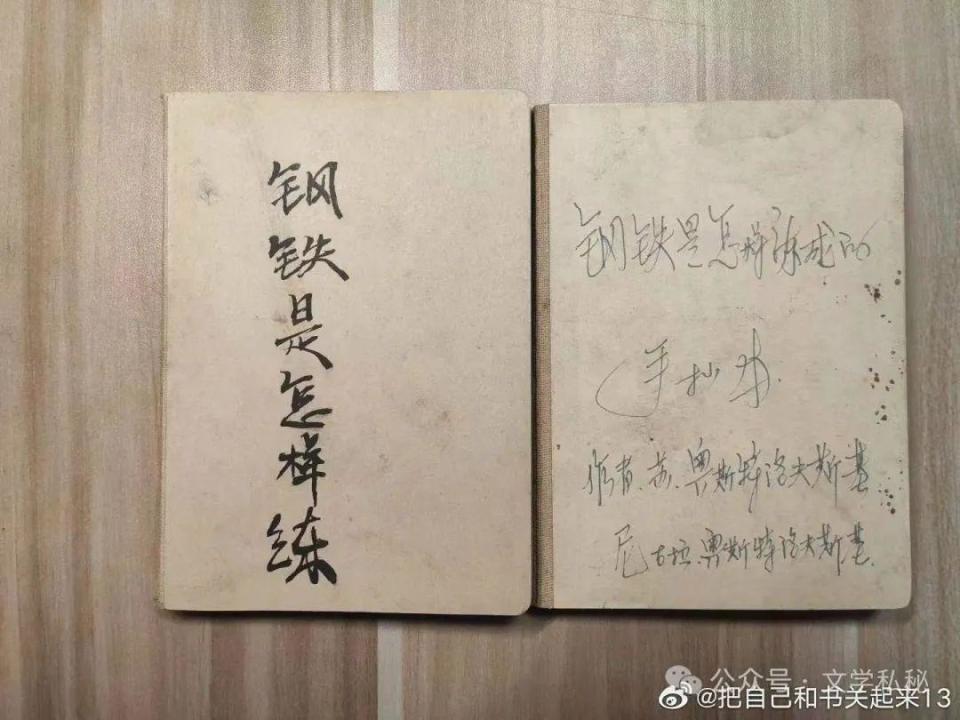 钢铁是怎样练
钢铁是怎样练成的
手抄本
作者、苏、奥斯特洛夫斯基
尼古拉.奥斯特洛夫斯基.
公众号 · 文学私秘
@把自己和书关起来13